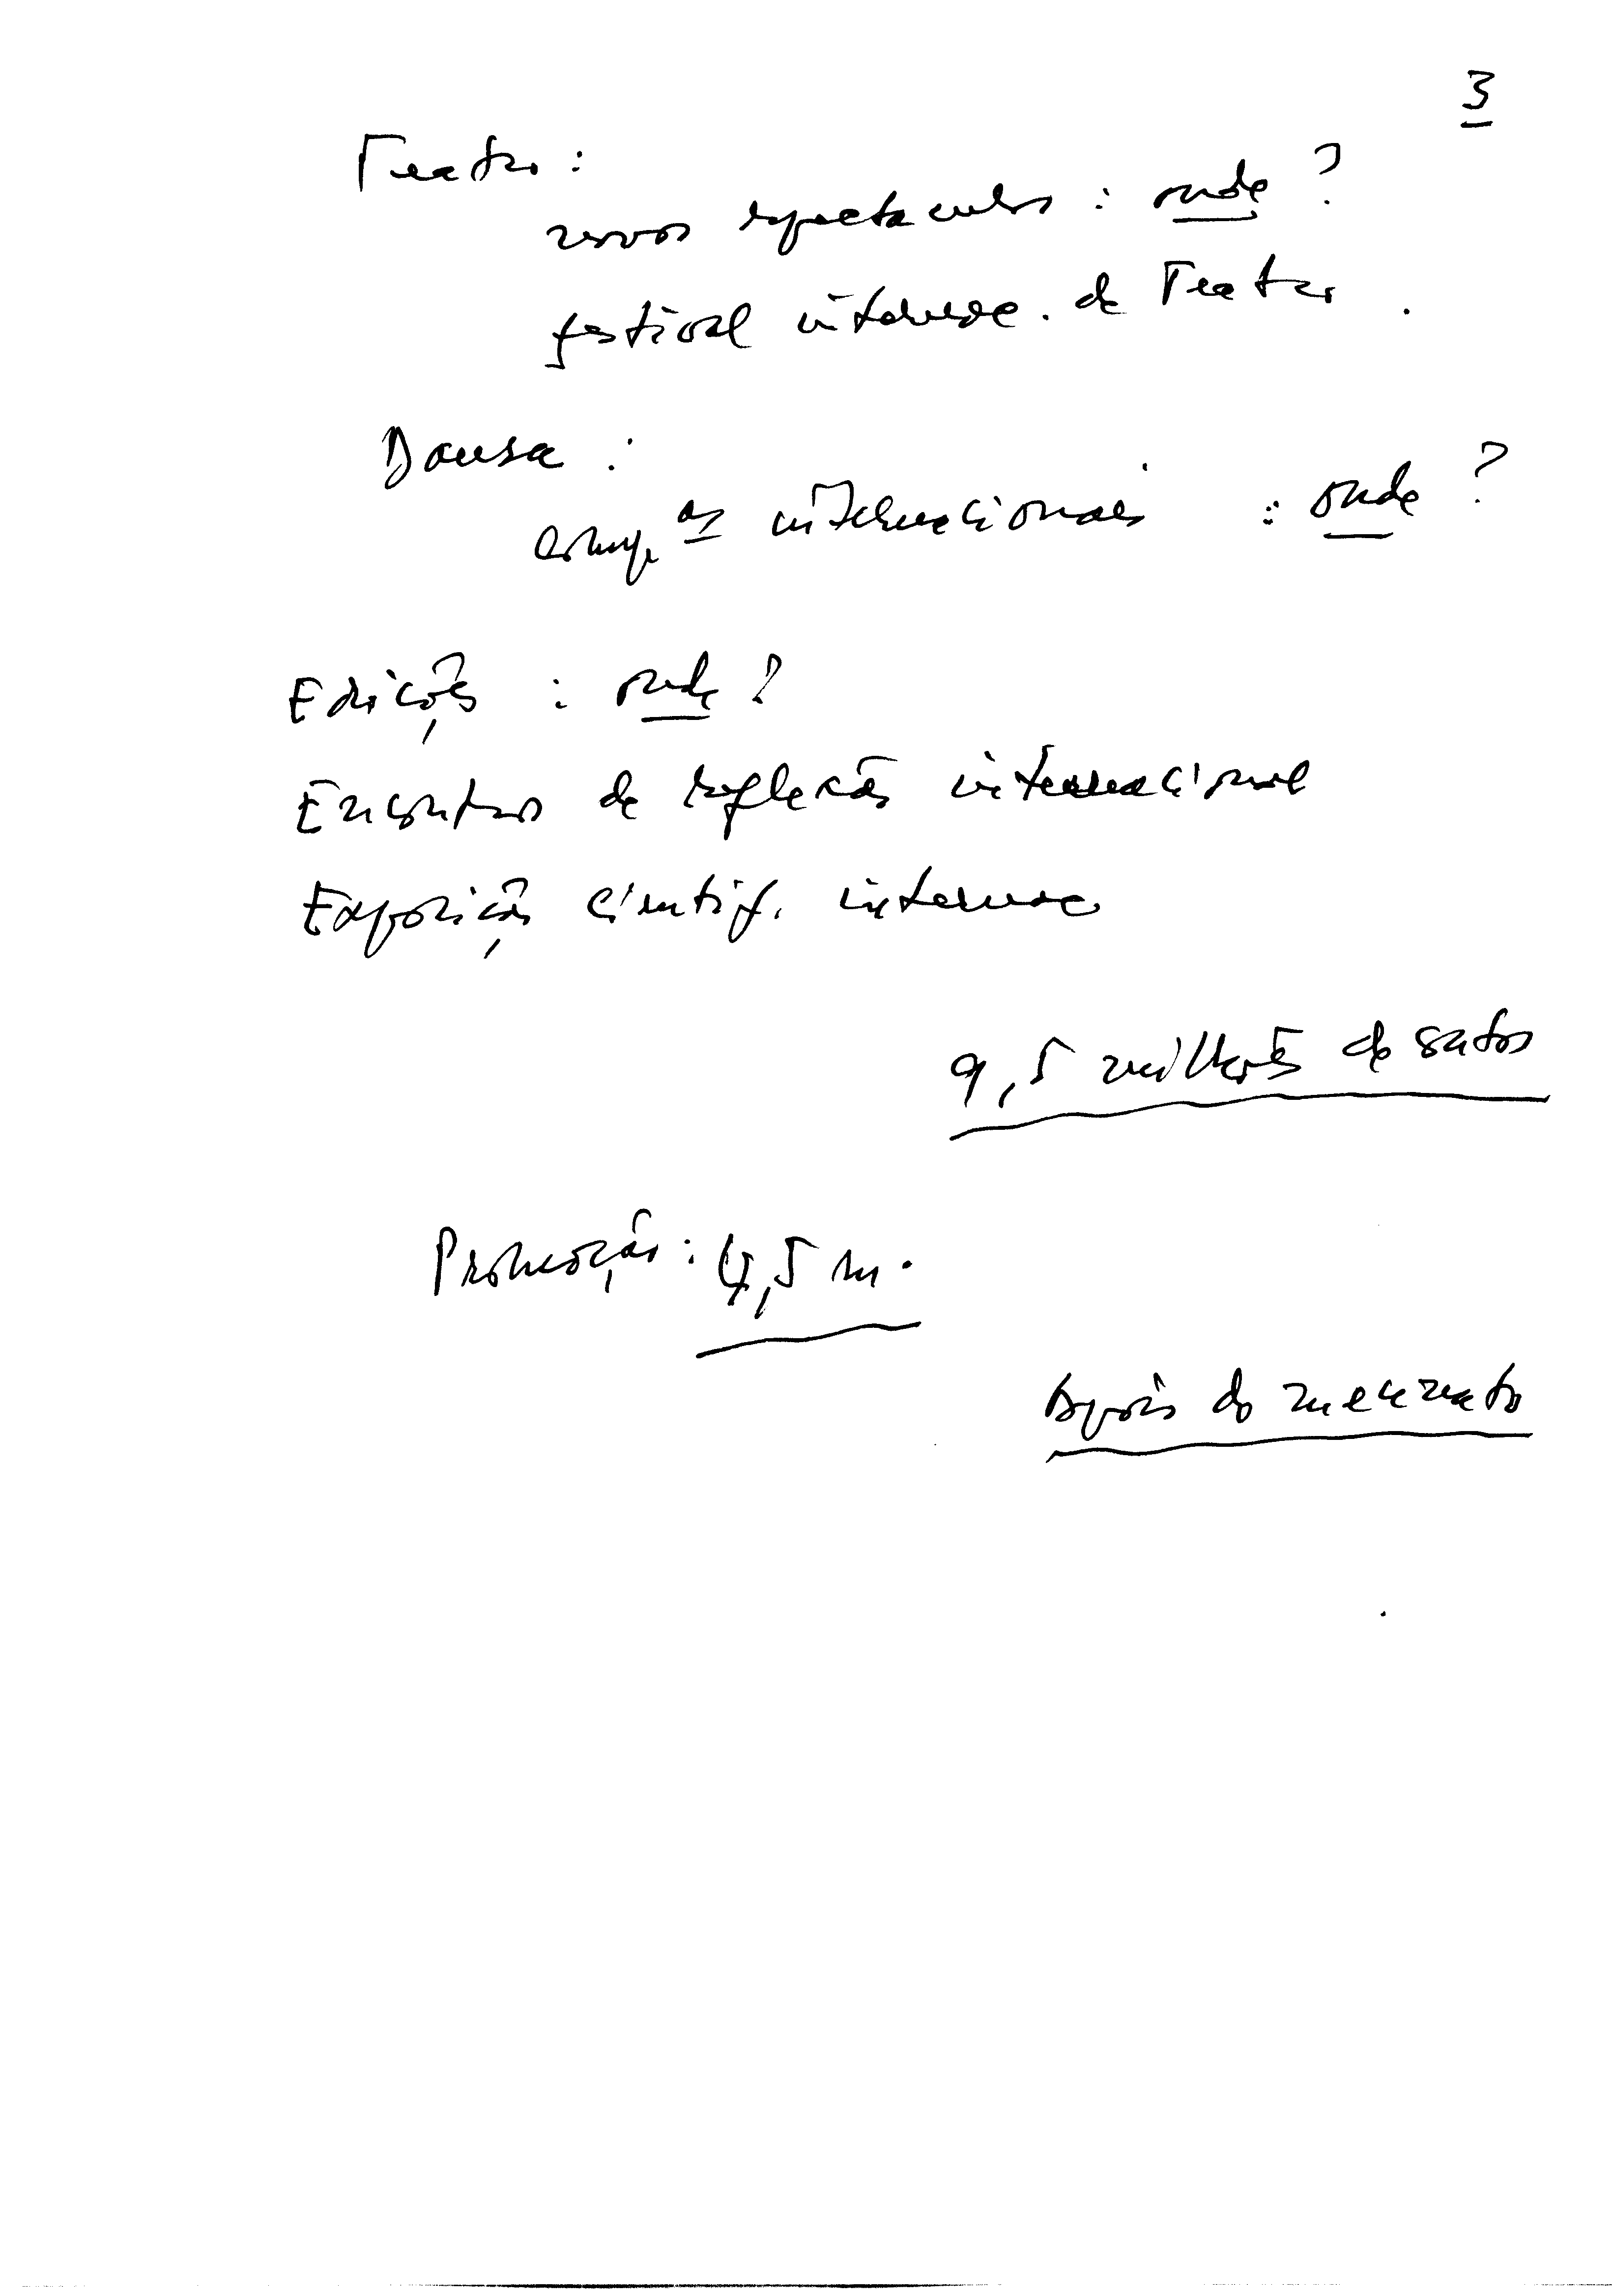 3
Teatro :
novos espectaculos : onde ?
festival internac. de Teatro .
Dansa :
comp.as internacionais : onde ?
Edições : onde ?
Encontros de reflexão internacional
Exposição cientif. internac
9,5 milhões de
Promoção : 4,5 m.
Apois do mecenato